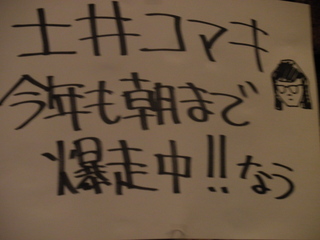 土井コマキ
今年も朝まで
爆走中!!なう